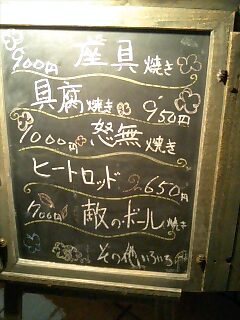 900円 産具焼き
具腐焼き 950円
1000円 怒無焼き
ヒートロッド 2650円
700円 敵のボール焼き
その他いろいろ